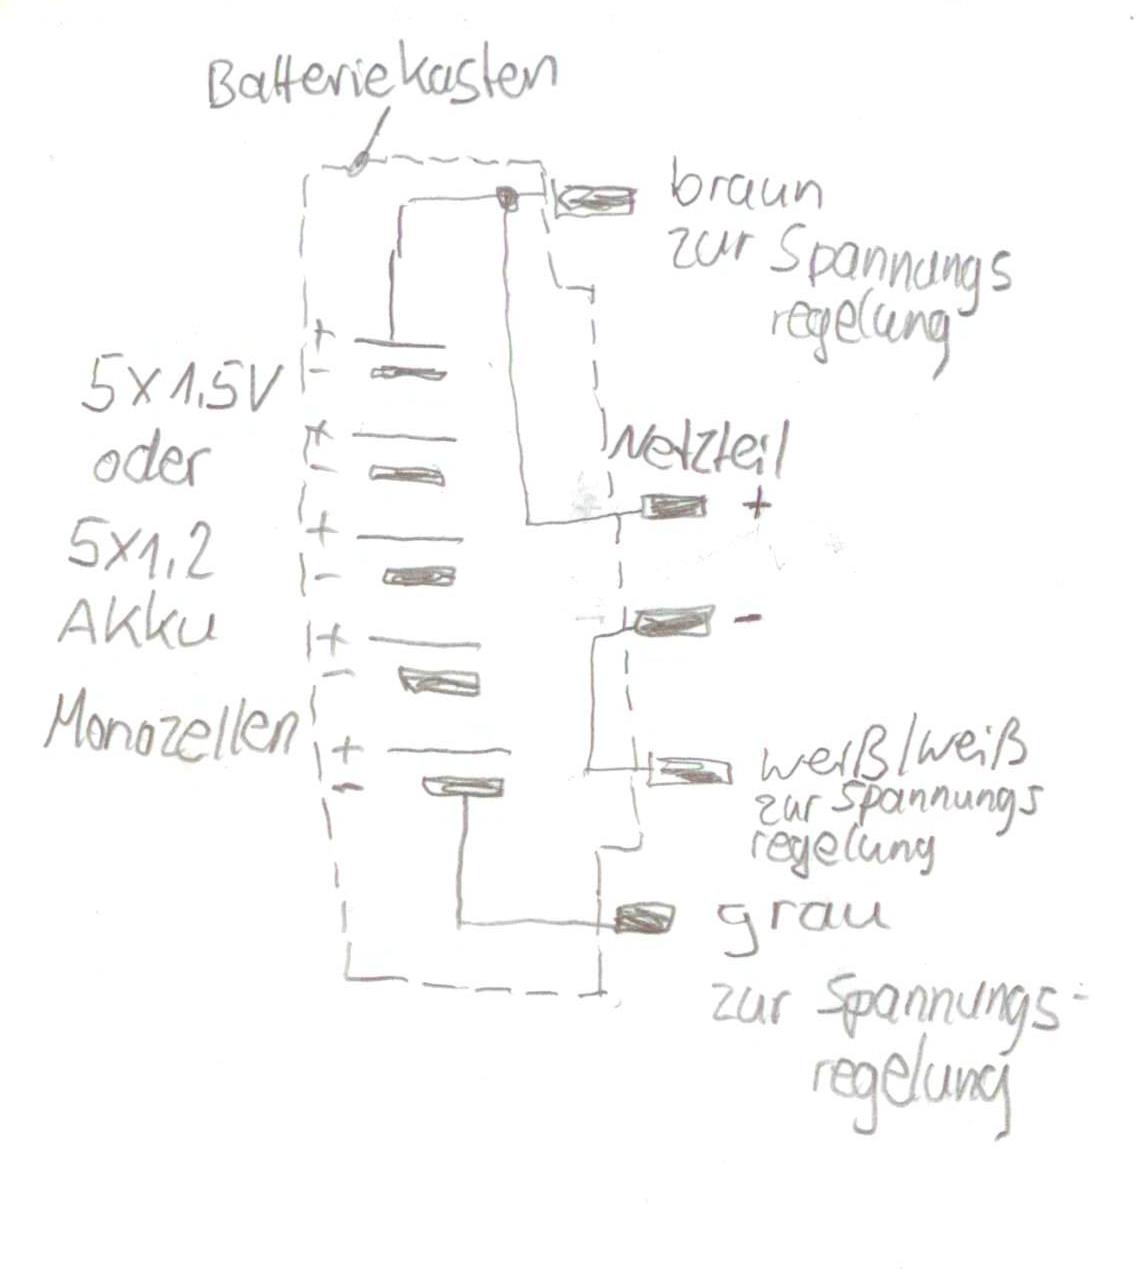 Batteriekasten
braun
zur Spannungs
regelung
+
-
5x1,5V
oder
5x1,2
Akku
Monozellen
+
-
+
-
+
-
+
-
Netzteil
+
-
weiß/weiß
zur Spannungs
regelung
grau
zur Spannungs-
regelung